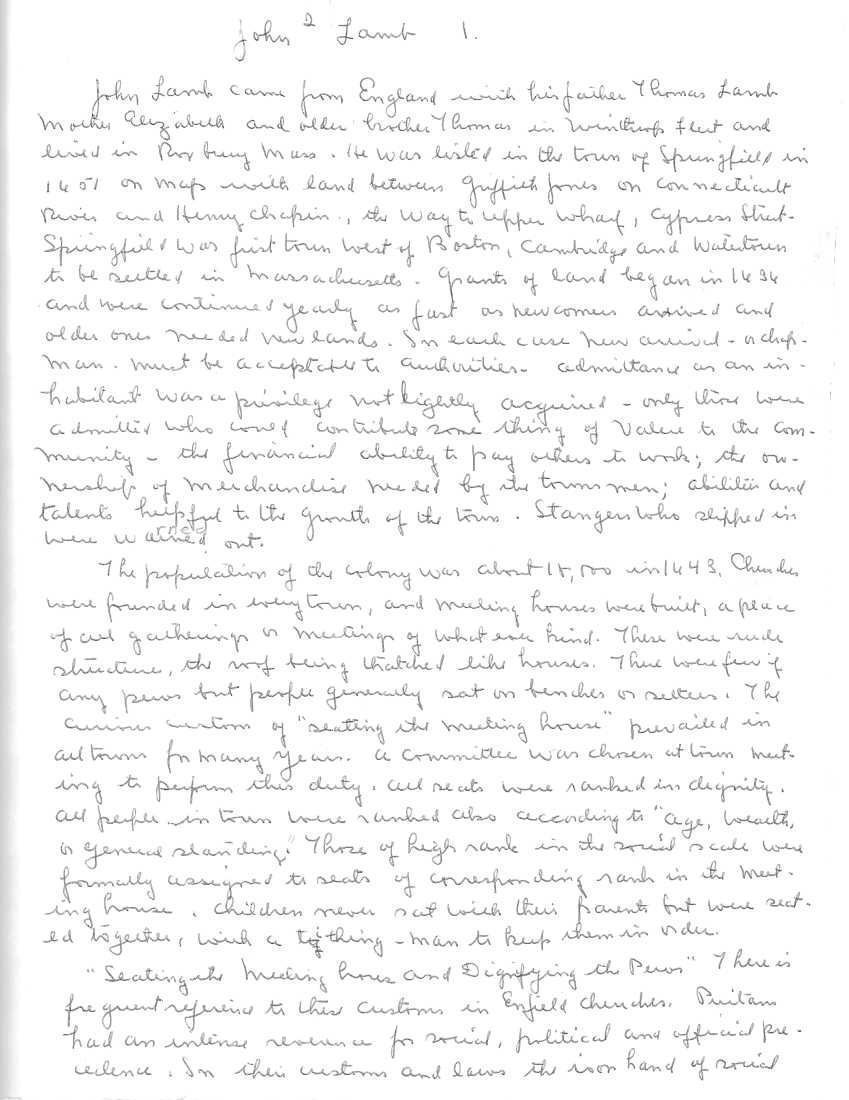 John 2 Lamb 1.
John Lamb came from England with his father Thomas Lamb
Mother Elizabeth and older brother Thomas in Winthrop Fleet and
lived in Roxbury Mass. He was listed in the town of Springfield in
1651 on maps with land between Griffith Jones on Connecticult
River and Henry Chapin., the way to upper wharf, Cypress Street.
Springfield was first town west of Boston, Cambridge and Watertown
to be settled in Massachusetts. Grants of land began in 1636
and were continued yearly as fast as newcomers arrived and
older ones needed new lands. In each case new arrival - or chap-
man. must be acceptable to authorities. admittance as an in-
habitant was a privilege not lightly acquired - only those were
admitted who could contribute some thing of value to the com-
munity - the financial ability to pay others to work; the ow-
nership of merchandise needed by the townsmen; abilities and
talents helpful to the growth of the town. Stangers who slipped in
were warned out.
The population of the colony was about 15,000 in 1643. Churches
were founded in every town, and meeting houses were built, a place
of all gatherings or meetings of what ever kind. These were rude
structure, the roof being thatched like houses. There were few if
any pews but people generally sat on benches or settees. The
curious custom of "seating the meeting house" prevailed in
all towns for many years. a committee was chosen at town meet-
ing to perform this duty. all seats were ranked in dignity.
all people in town were ranked also according to "age, wealth,
or general standing." Those of high rank in the social scale were
formally assigned to seats of corresponding rank in the meet-
ing house. Children never sat with their parents but were seat-
ed together, with a tything-man to keep them in order.
"Seating the Meeting house and Dignifying the Pews" There is
frequent reference to these customs in Enfield churches. Puritans
had an intense reverence for social, political and official pre-
cedence. In their customs and laws the iron hand of social